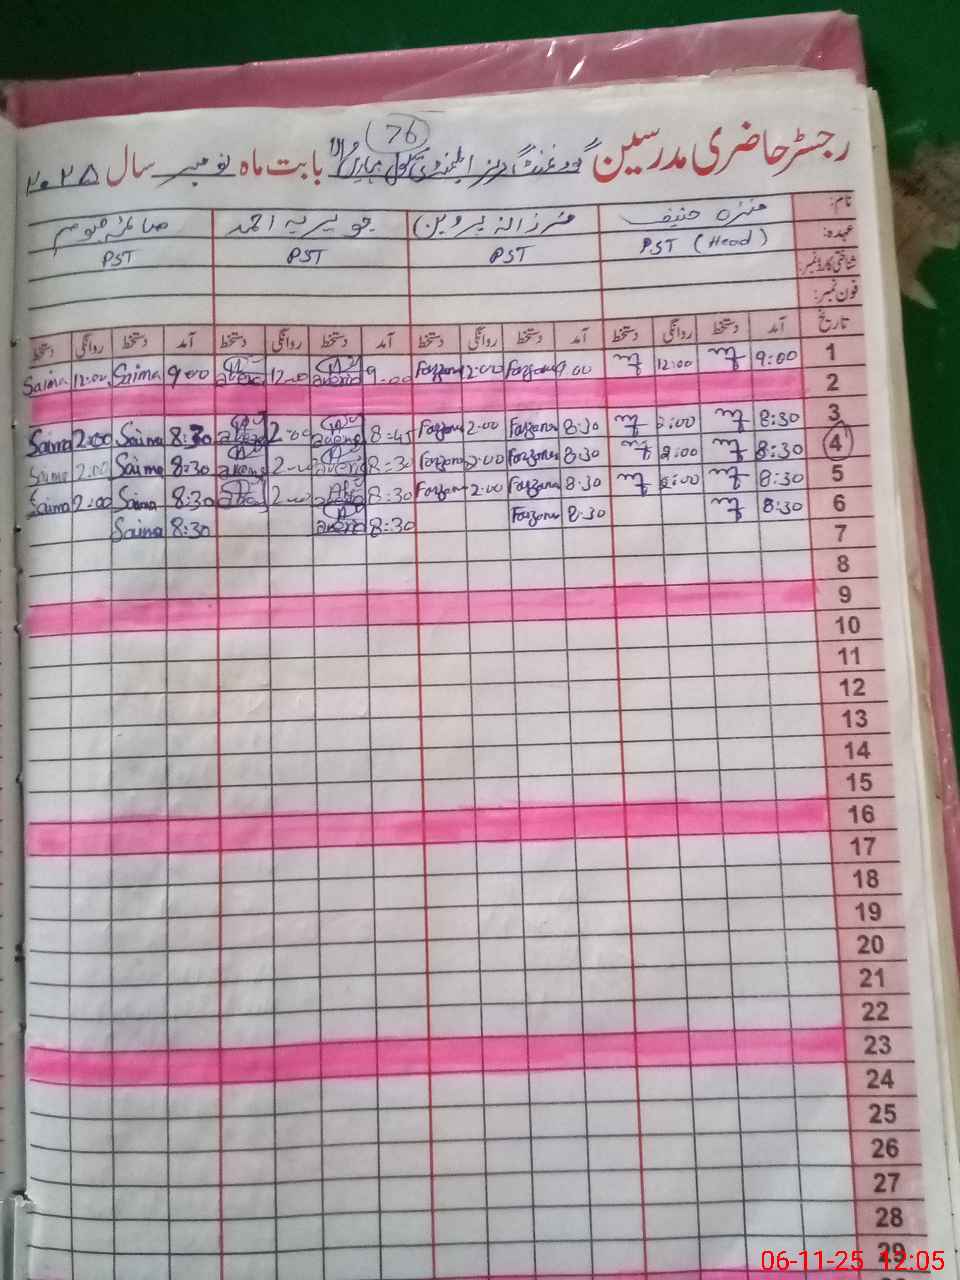 (76)
رجسٹر حاضری مدرسین گورنمنٹ گرلز ایلیمنٹری سکول بابت ماہ نومبر سال ۲۰۲۵
نام: منزہ حنیف فرزانہ پروین جویریہ احمد صائمہ
عہدہ: PST (Head) PST PST PST
شناختی کارڈ نمبر:
فون نمبر:
تاریخ آمد دستخط روانگی دستخط آمد دستخط روانگی دستخط آمد دستخط روانگی دستخط آمد دستخط روانگی دستخط
1 9:00 12:00 9.00 Farzana 12:00 Farzana 9:00 12:00 9:00 Saima 12:00 Saima
2
3 8:30 2:00 8:30 Farzana 2:00 Farzana 8:45 2:00 8:30 Saima 2:00 Saima
4 8:30 2:00 8:30 Farzana 2:00 Farzana 8:30 2:00 8:30 Saima 2:00 Saima
5 8:30 2:00 8:30 Farzana 2:00 Farzana 8:30 2:00 8:30 Saima 2:00 Saima
6 8:30 8:30 Farzana 8:30 8:30 Saima
7
8
9
10
11
12
13
14
15
16
17
18
19
20
21
22
23
24
25
26
27
28
29
06-11-25 12:05